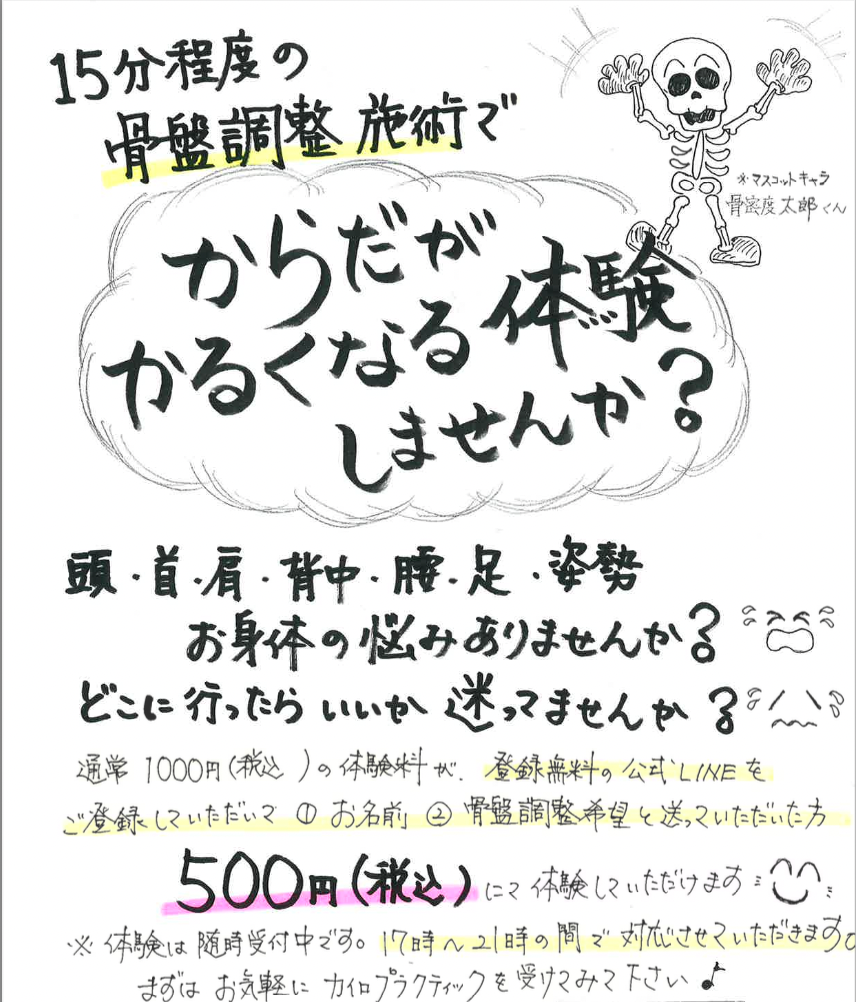 15分程度の
骨盤調整 施術で
※マスコットキャラ
骨密度太郎くん
からだが
かるくなる体験
しませんか?
頭・首・肩・背中・腰・足・姿勢
お身体の悩みありませんか?
どこに行ったらいいか迷ってませんか?
通常1000円(税込)の体験料が、登録無料の公式LINEを
ご登録していただいて①お名前②骨盤調整希望と送っていただいた方
500円(税込)にて体験していただけます
※体験は随時受付中です。17時〜21時の間で対応させていただきます。
まずはお気軽にカイロプラクティックを受けてみて下さい♪